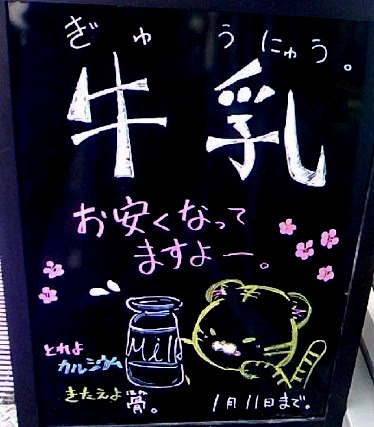 ぎゅうにゅう。
牛乳
お安くなって
ますよー。
Milk
とれよ
カルシウム
きたえよ骨。
1月11日まで。